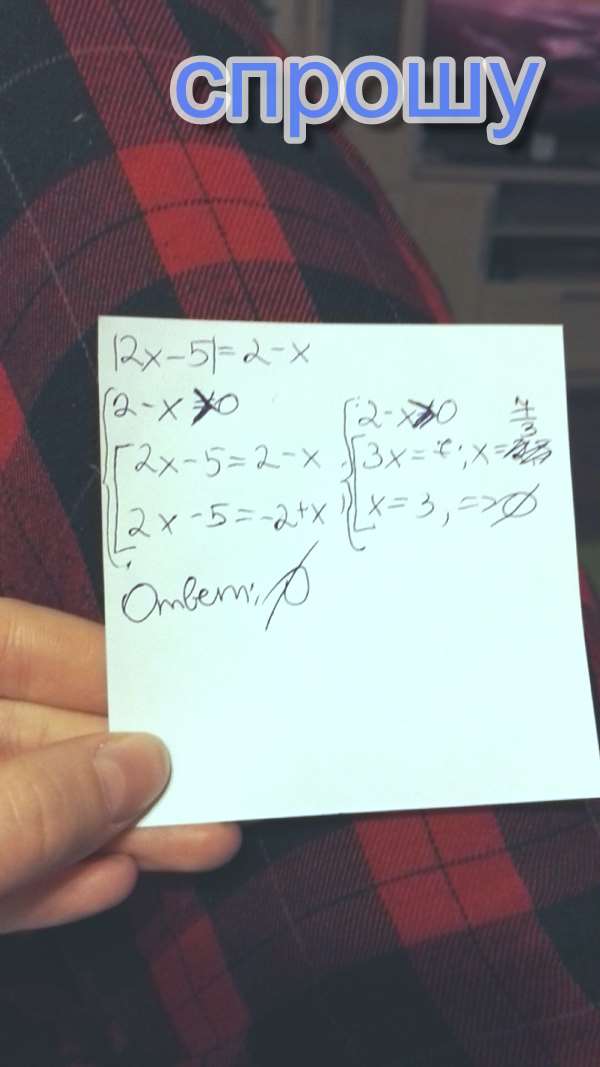 спрошу
|2x-5|=2-x
2-x≥0
2x-5=2-x
2x-5=-2+x
2-x≥0
3x=7; x=7/3
x=3, =>∅
Ответ: ∅